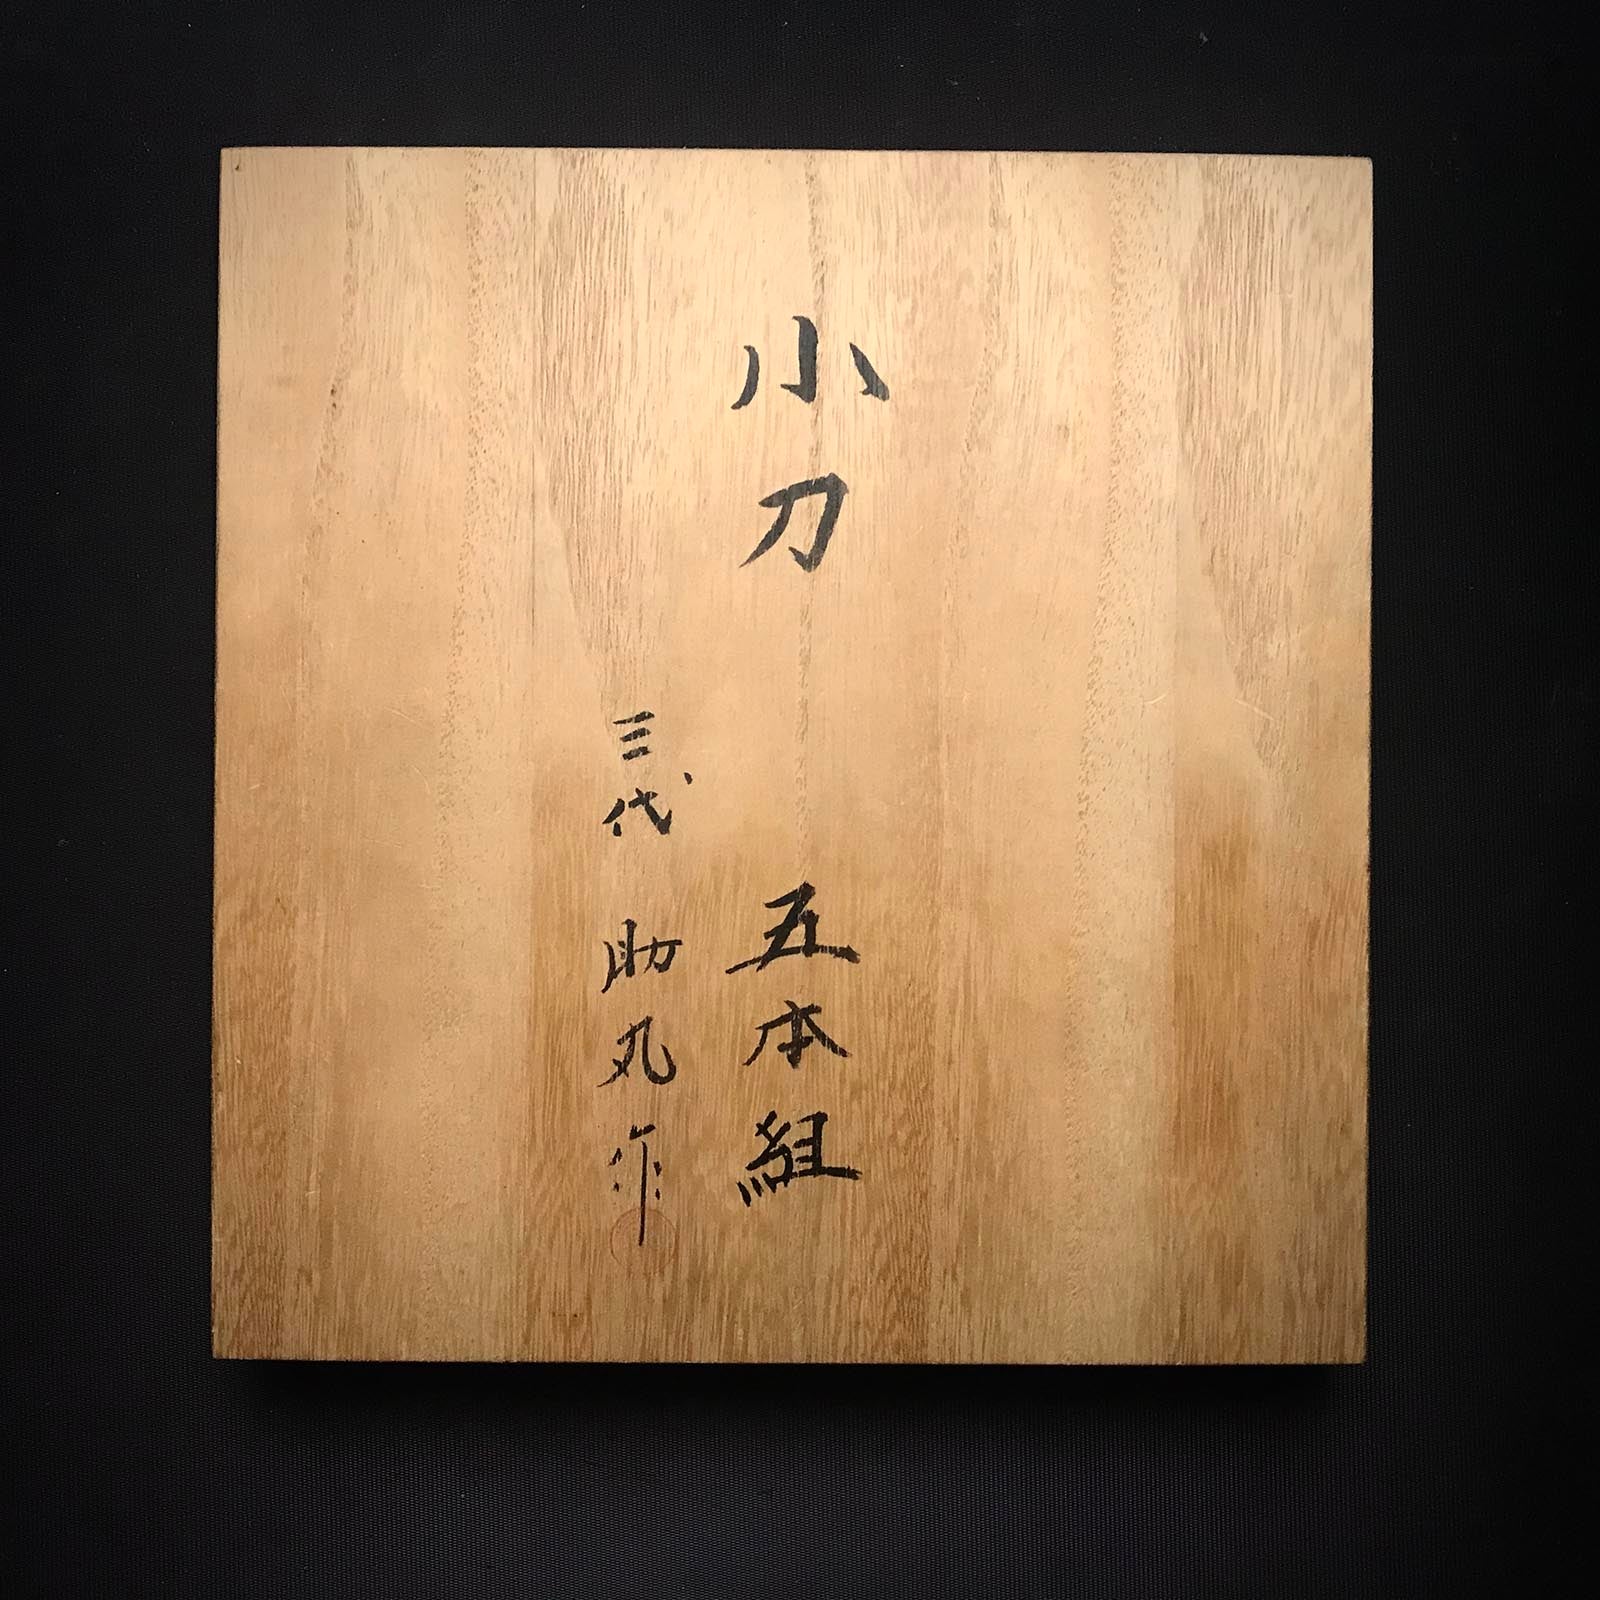 小刀 五本組
三代 助丸作